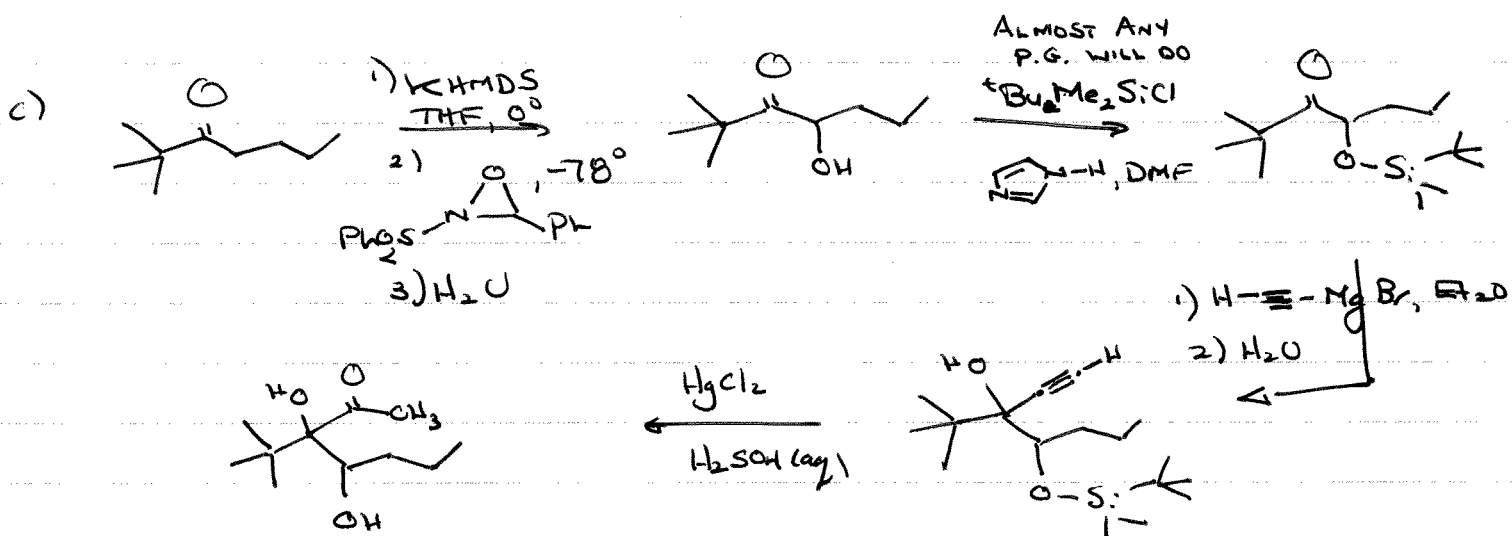 c)
O
1) KHMDS
THF, 0°
2)
O , -78°
N
PhO2S
Ph
3) H2O
O
OH
ALMOST ANY
P.G. WILL DO
tBuMe2SiCl
N-H, DMF
N
O
O-Si
1) H-≡-MgBr, Et2O
2) H2O
HO
H
O-Si
HgCl2
H2SO4 (aq)
HO
O
CH3
OH